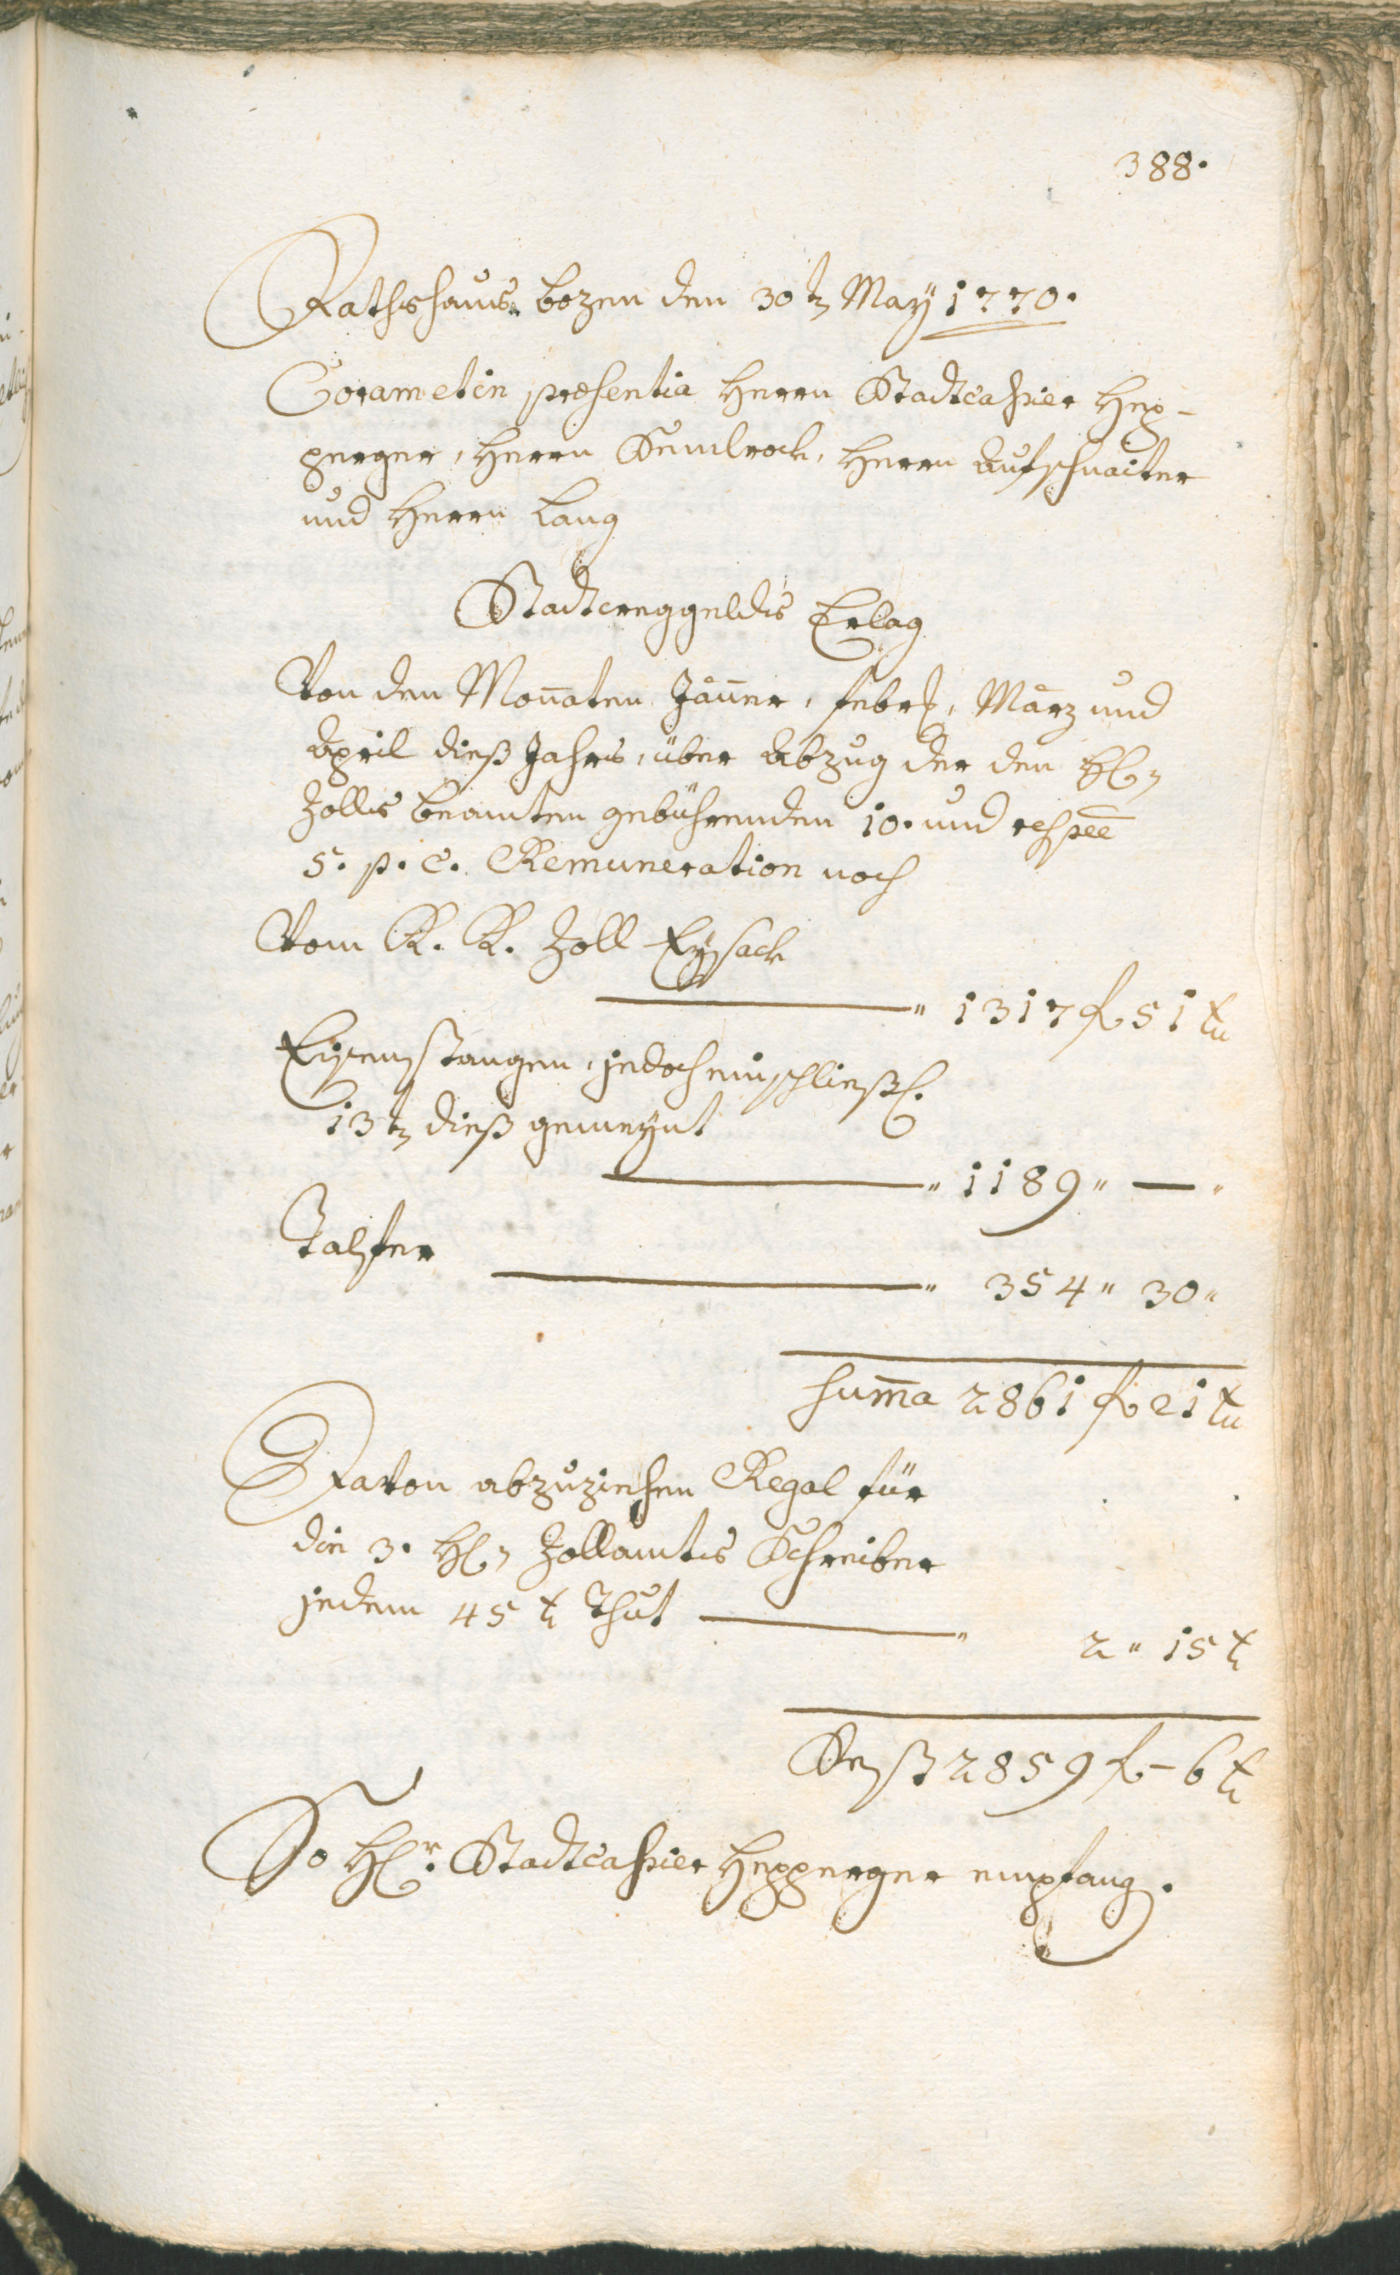 388.
Rathshaus Bozen den 30t. May 1770.
Coram et in præsentia Herrn Stadtcassier Hep-
perger, Herrn Kemlrock, Herrn Aufschnaiter
und Herrn Lang
Stadtweggelds Erlag
Von den Monnaten Jänner, Febr., März und
April dieß Jahrs, über Abzug der den H.
Zolls beamten gebührenden 10. und respee
5. p. c. Remuneration noch
Vom K. K. Zoll Eysack
" 1317 f 51 xr
Eisenstangen, jedoch einschließl.
13t. dieß gemeynt
" 1189 " — "
Talfer
" 354 " 30 "
Summa 2861 f 21 xr
Davon abzuziehen Regal für
die 3. H. Zollamts Schreiber
jedem 45 x Thut " 2 " 15 x
Rest 2859 f – 6 x
So H.r Stadtcassier Hepperger empfang.